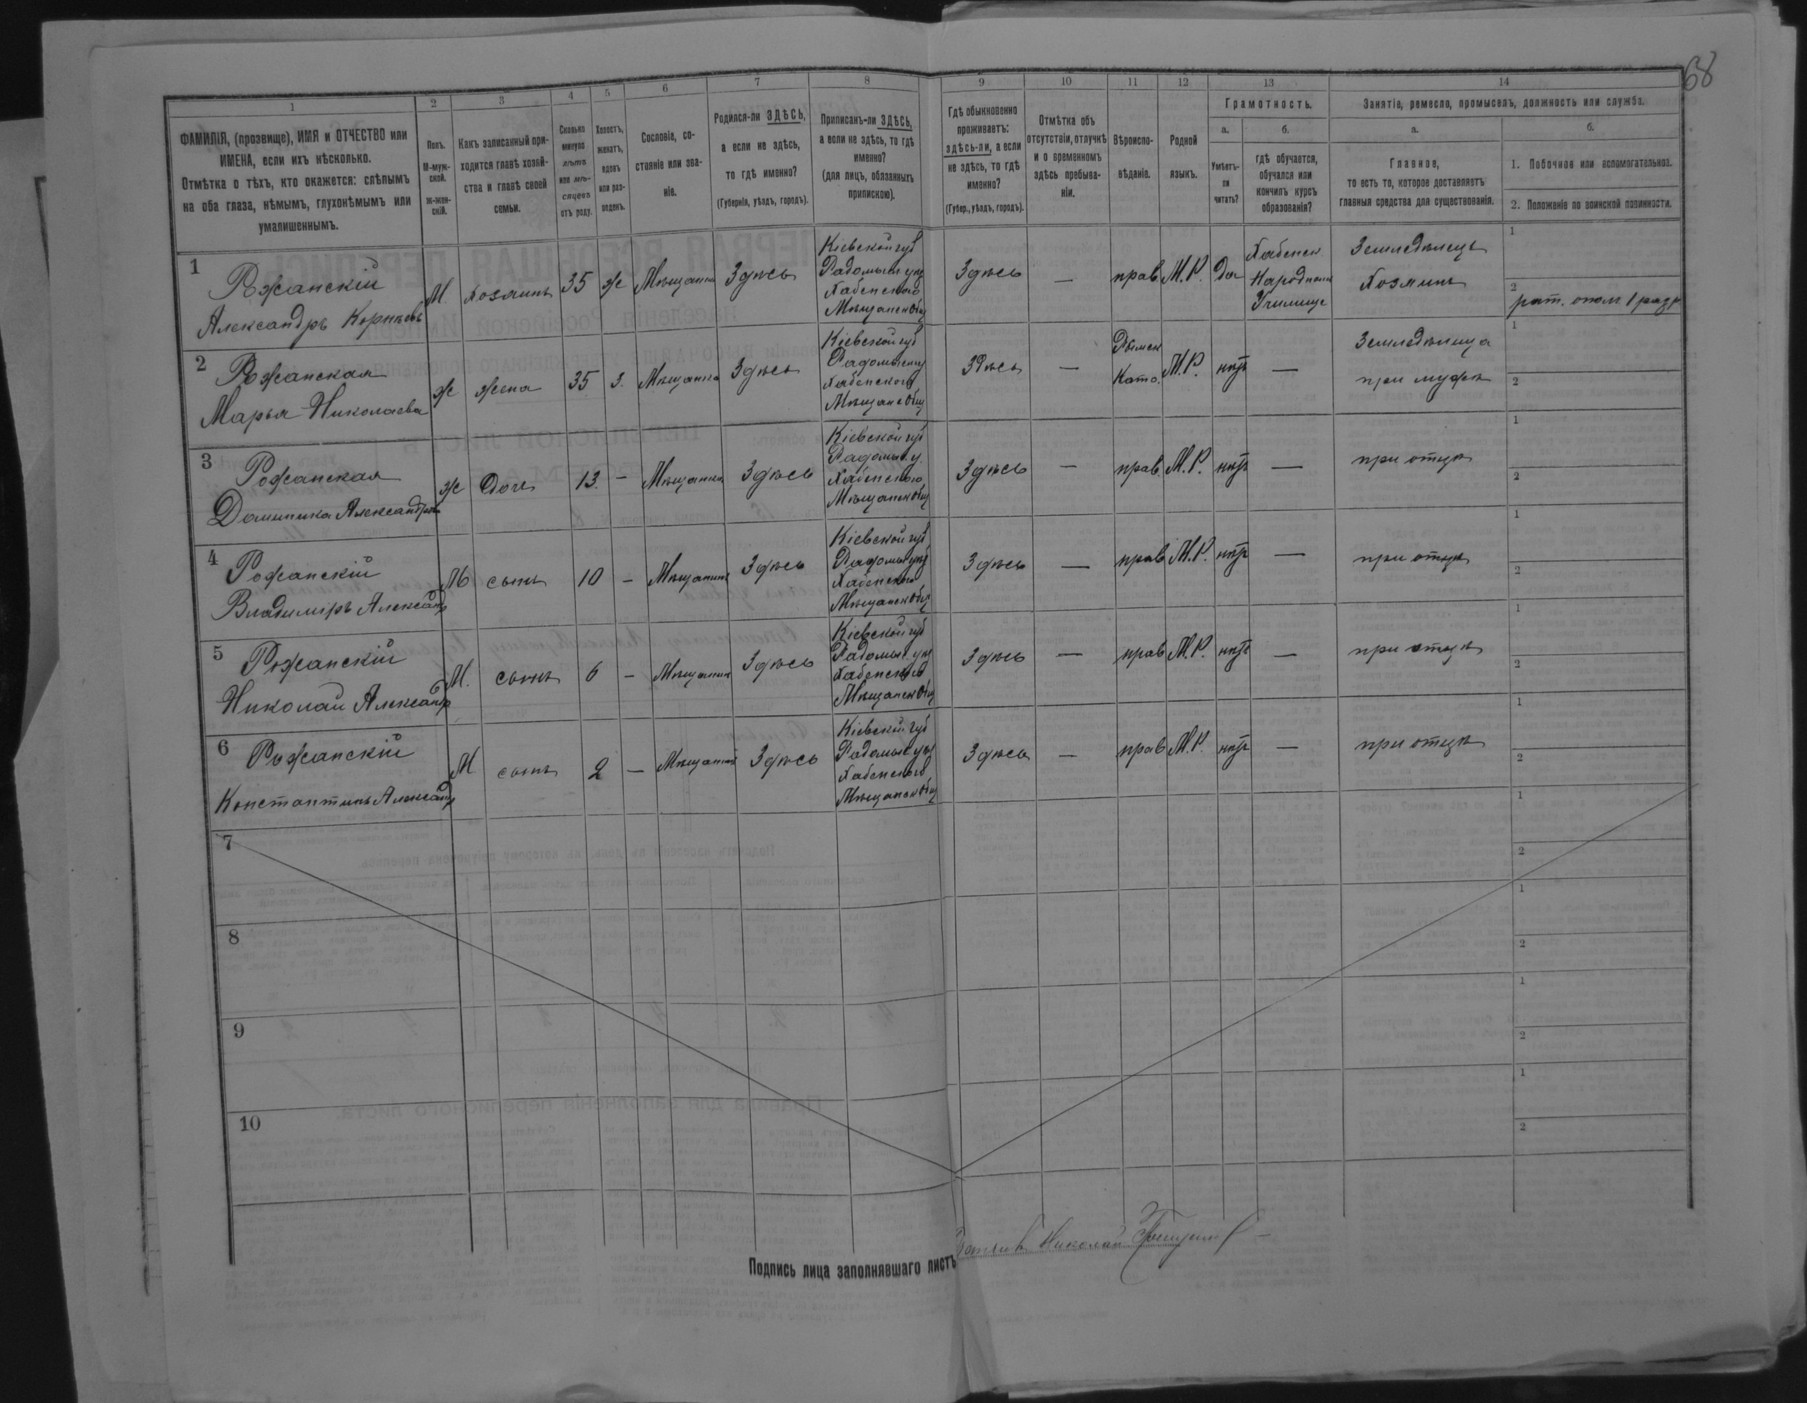 68
1
2
3
4
5
6
7
8
9
10
11
12
13
14
ФАМИЛІЯ, (прозвище), ИМЯ и ОТЧЕСТВО или
ИМЕНА, если ихъ нѣсколько.
Отмѣтка о тѣхъ, кто окажется: слѣпымъ
на оба глаза, нѣмымъ, глухонѣмымъ или
умалишеннымъ.
Полъ.
М-муж-
ской.
Ж-жен-
скій.
Какъ записанный при-
ходится главѣ хозяй-
ства и главѣ своей
семьи.
Сколько
минуло
лѣтъ
или мѣ-
сяцевъ
отъ роду.
Холостъ,
женатъ,
вдовъ
или раз-
веденъ.
Сословіе, со-
стояніе или зва-
ніе.
Родился-ли ЗДѢСЬ,
а если не здѣсь,
то гдѣ именно?
(Губернія, уѣздъ, городъ).
Приписанъ-ли ЗДѢСЬ,
а если не здѣсь, то гдѣ
именно?
(для лицъ, обязанныхъ
припискою).
Гдѣ обыкновенно
проживаетъ:
здѣсь-ли, а если
не здѣсь, то гдѣ
именно?
(Губер., уѣздъ, городъ).
Отмѣтка объ
отсутствіи, отлучкѣ
и о временномъ
здѣсь пребыва-
ніи.
Вѣроиспо-
вѣданіе.
Родной
языкъ.
Грамотность.
а.
Умѣетъ-
ли
читать?
б.
гдѣ обучается,
обучался или
кончилъ курсъ
образованія?
Занятіе, ремесло, промыселъ, должность или служба.
а.
Главное,
то есть то, которое доставляетъ
главныя средства для существованія.
б.
1. Побочное или вспомогательное.
2. Положеніе по воинской повинности.
1
Рожанскій
Александръ Корнѣевъ
М
хозяинъ
35
ж
Мѣщанинъ
Здѣсь
Кіевской губ
Радомыс у
Хабенского
Мѣщанск общ
Здѣсь
—
прав
М.Р.
Да
Хабенск
Народное
Училище
Земледѣлецъ
Хозяинъ
1
2
рат. опол 1 разр
2
Рожанская
Марья Николаева
ж
жена
35
з.
Мѣщанка
Здѣсь
Кіевской губ
Радомыс у
Хабенского
Мѣщанс общ
Здѣсь
—
Римск
Като.
М.Р.
нѣтъ
—
Земледѣлица
при мужѣ
1
2
3
Рожанская
Доминика Александров
ж
Дочь
13
—
Мѣщанка
Здѣсь
Кіевской губ
Радомыс у
Хабенского
Мѣщанск общ
Здѣсь
—
прав
М.Р.
нѣтъ
—
при отцѣ
1
2
4
Рожанскій
Владимиръ Александр
М
сынъ
10
—
Мѣщанинъ
Здѣсь
Кіевской губ
Радомыс у
Хабенского
Мѣщанск общ
Здѣсь
—
прав
М.Р.
нѣтъ
—
при отцѣ
1
2
5
Рожанскій
Николай Александр
М.
сынъ
6
—
Мѣщанин
Здѣсь
Кіевской губ
Радомыс у
Хабенского
Мѣщанск общ
Здѣсь
—
прав
М.Р.
нѣтъ
—
при отцѣ
1
2
6
Рожанскій
Константинъ Александр
М
сынъ
2
—
Мѣщанин
Здѣсь
Кіевской губ
Радомыс у
Хабенского
Мѣщанск общ
Здѣсь
—
прав
М.Р.
нѣтъ
—
при отцѣ
1
2
7
1
2
8
1
2
9
1
2
10
1
2
Подпись лица заполнявшаго листъ
Николай